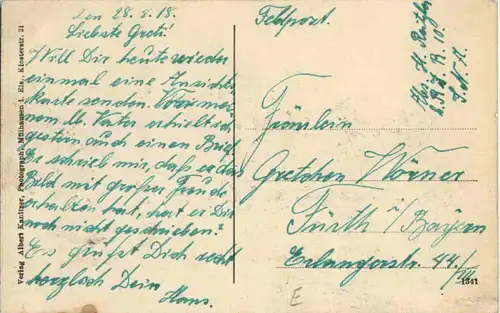 den 28.8.18.
Liebste Gretl!
Will Dir heute wieder
einmal eine Ansichts-
karte senden. Von mei-
nem lb. Vater erhielt ich
gestern auch einen Brief.
Er schrieb mir, daß er das
Bild mit großer Freude
erhalten hat, hat er Dir
noch nicht geschrieben?
Es grüßt Dich recht
herzlich Dein
Hans.
Feldpost.
Abs. H.
Fräulein
Gretchen Wörner
Fürth i/Bayern
Erlangerstr. 44/III
E
1341
Verlag Albert Kautzor, Photograph, Mülhausen i. Els., Klosterstr. 21